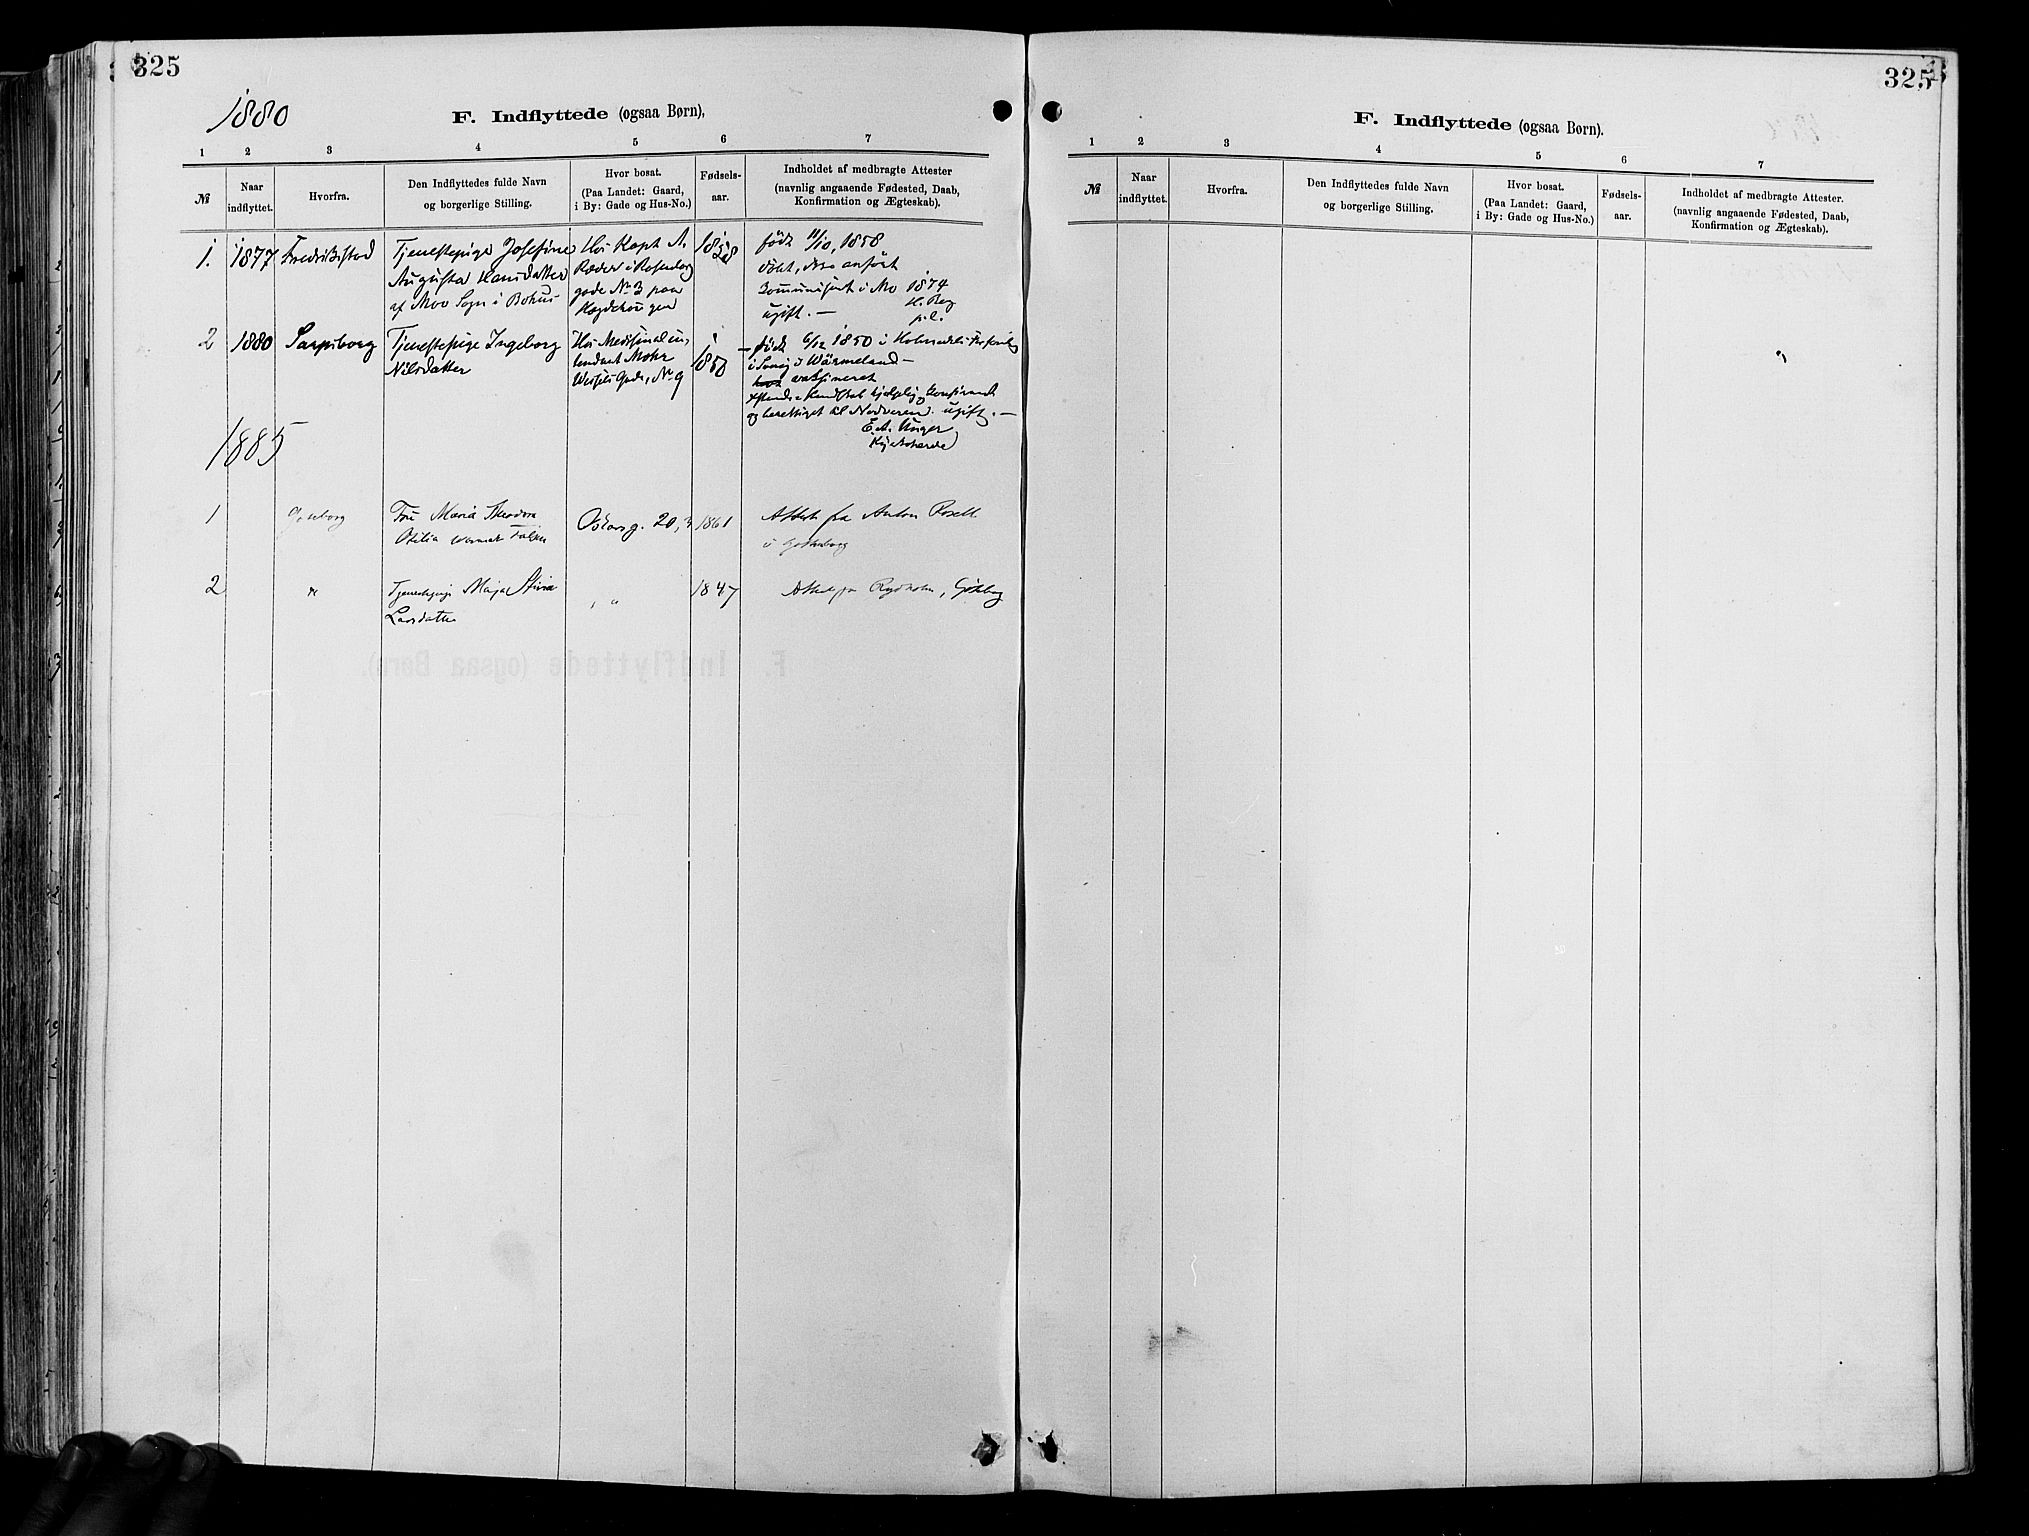 325
1880
F. Indflyttede (ogsaa Børn),
1 2 3 4 5 6 7
№
Naar
indflyttet.
Hvorfra.
Den Indflyttedes fulde Navn
og borgerlige Stilling.
Hvor bosat.
(Paa Landet: Gaard,
i By: Gade og Hus-No.)
Fødsels-
aar.
Indholdet af medbragte Attester
(navnlig angaaende Fødested, Daab,
Konfirmation og Ægteskab).
1.
1877
Fredrikstad
Tjenestepige Josefine
Augusta Hansdatter
af Moo Sogn i Bohus-
Hos Kapt A.
Ræder i Rosenborg
gade No 3 paa
Hægdehougen
1858
født 11/10, 1858
døbt,
i Mo 1874
ugift. —
2
1880
Sarpsborg
Tjenestepige Ingeborg
Nilsdatter
Hos Medisinalin-
tendant Mohr
Wessels Gade, No 9
1850
født 6/12 1850 i
i Wärmeland —
vaksineret
og berettiget til Nadveren. ugift. —
E. A. Unger
1885
1
Gøteborg
Fru Maria Theodora
Otilia
Oskarsg. 20, 3
1861
Attest fra Anton Rosell
i Gøtheborg
2
"
Tjenestepige Maja Stina
Larsdatter
" "
1847
Attest fra Rydholm, Gøteborg
325
F. Indflyttede (ogsaa Børn).
1 2 3 4 5 6 7
№
Naar
indflyttet.
Hvorfra.
Den Indflyttedes fulde Navn
og borgerlige Stilling.
Hvor bosat.
(Paa Landet: Gaard,
i By: Gade og Hus-No.)
Fødsels-
aar.
Indholdet af medbragte Attester.
(navnlig angaaende Fødested, Daab,
Konfirmation og Ægteskab).